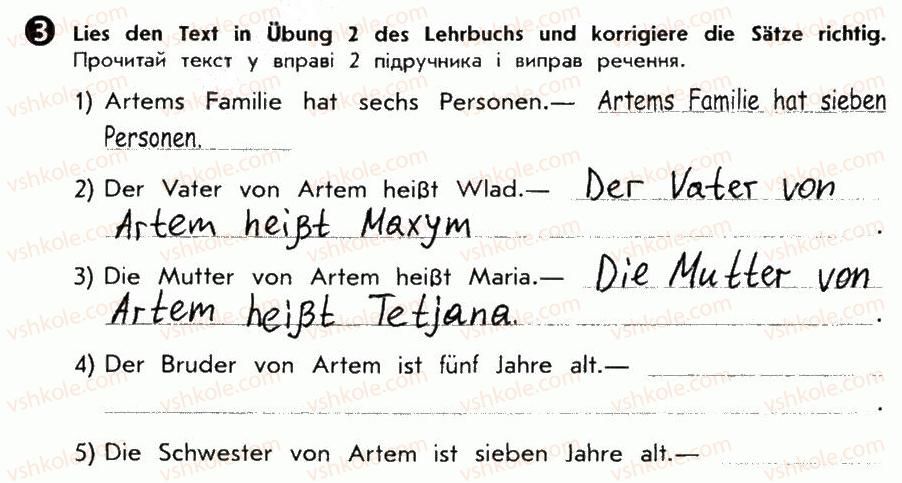 3 Lies den Text in Übung 2 des Lehrbuchs und korrigiere die Sätze richtig.
Прочитай текст у вправі 2 підручника і виправ речення.
1) Artems Familie hat sechs Personen.— Artems Familie hat sieben
Personen.
2) Der Vater von Artem heißt Wlad.— Der Vater von
Artem heißt Maxym .
3) Die Mutter von Artem heißt Maria.— Die Mutter von
Artem heißt Tetjana. .
4) Der Bruder von Artem ist fünf Jahre alt.—
.
5) Die Schwester von Artem ist sieben Jahre alt.—
vshkole.com